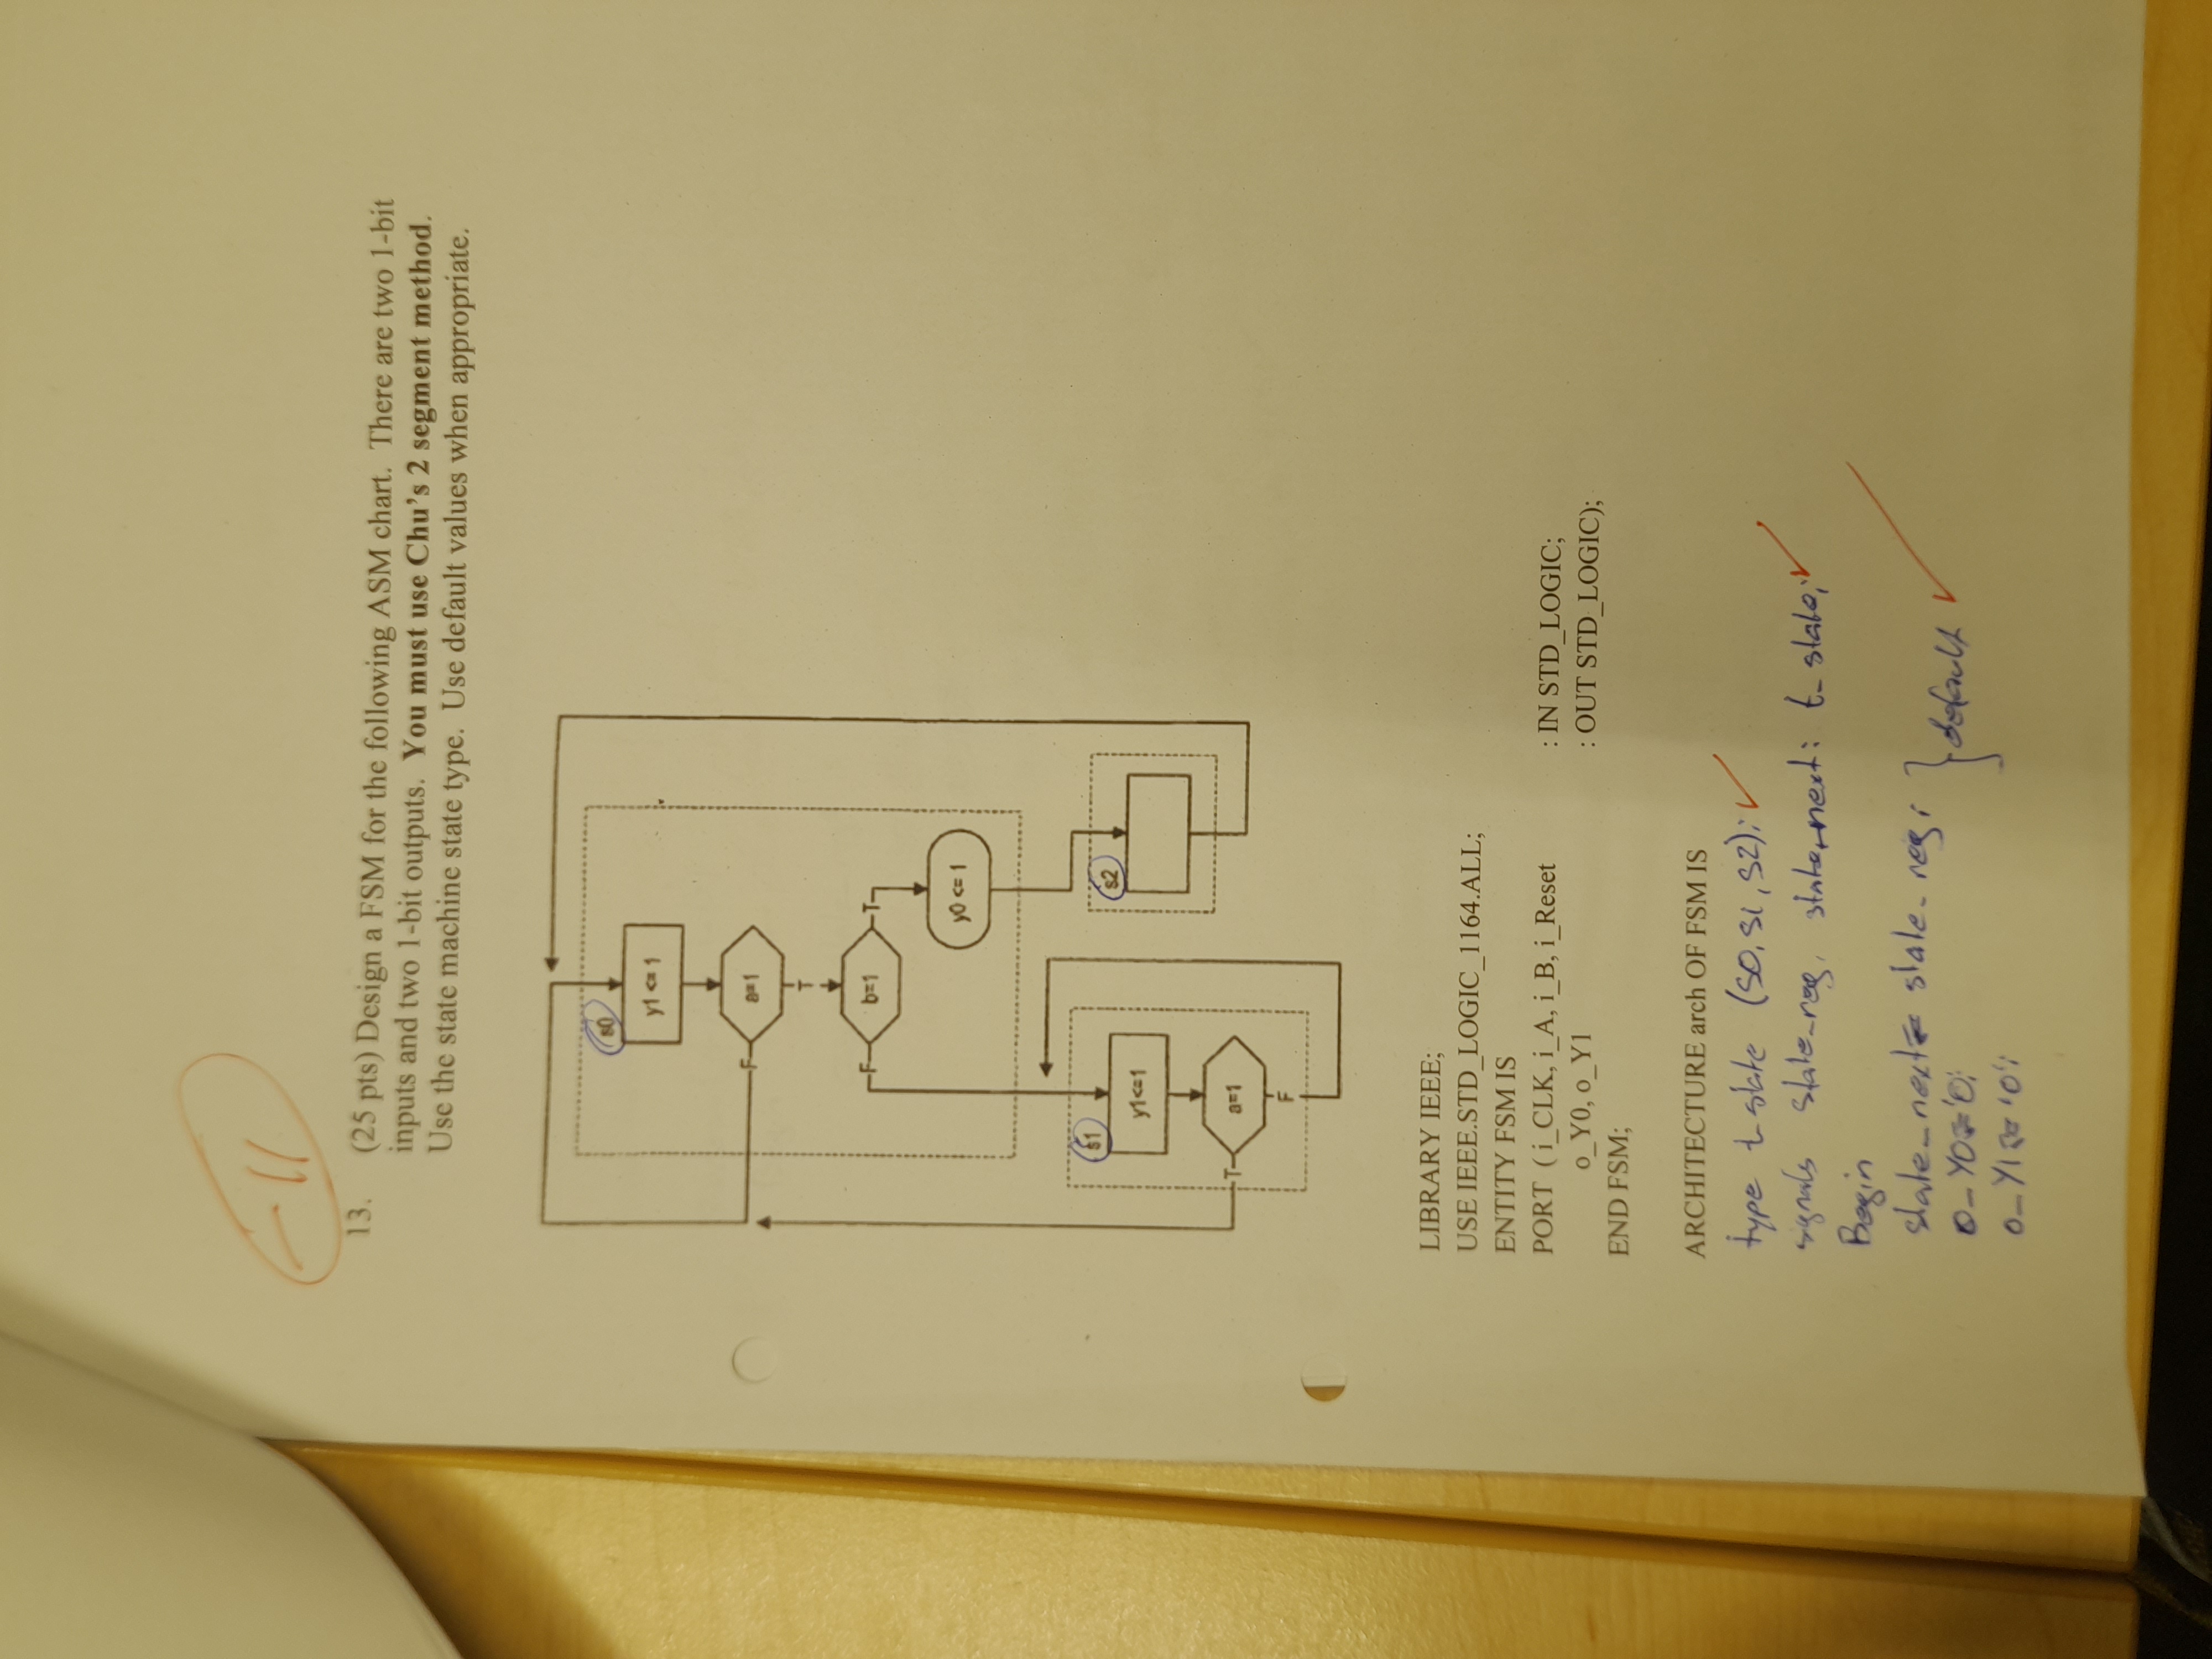 -11
13. (25 pts) Design a FSM for the following ASM chart. There are two 1-bit
inputs and two 1-bit outputs. You must use Chu's 2 segment method.
Use the state machine state type. Use default values when appropriate.
s0
y1 <= 1
F
a=1
T
F
b=1
T
y0 <= 1
s1
y1<=1
s2
T
a=1
F
LIBRARY IEEE;
USE IEEE.STD_LOGIC_1164.ALL;
ENTITY FSM IS
PORT ( i_CLK, i_A, i_B, i_Reset : IN STD_LOGIC;
o_Y0, o_Y1 : OUT STD_LOGIC);
END FSM;
ARCHITECTURE arch OF FSM IS
type t_state (S0, S1, S2);
signals state_reg, state_next: t_state;
Begin
state_next<= state_reg;
o_Y0<='0;
o_Y1<='0';
} default